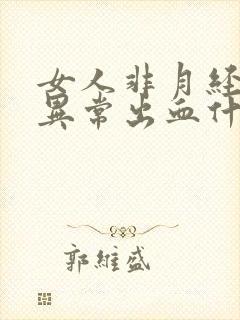 女人非月經
異常出血什
郭維盛